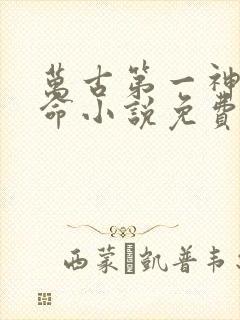 萬古第一神
命小說免費
西蒙 凱普韦